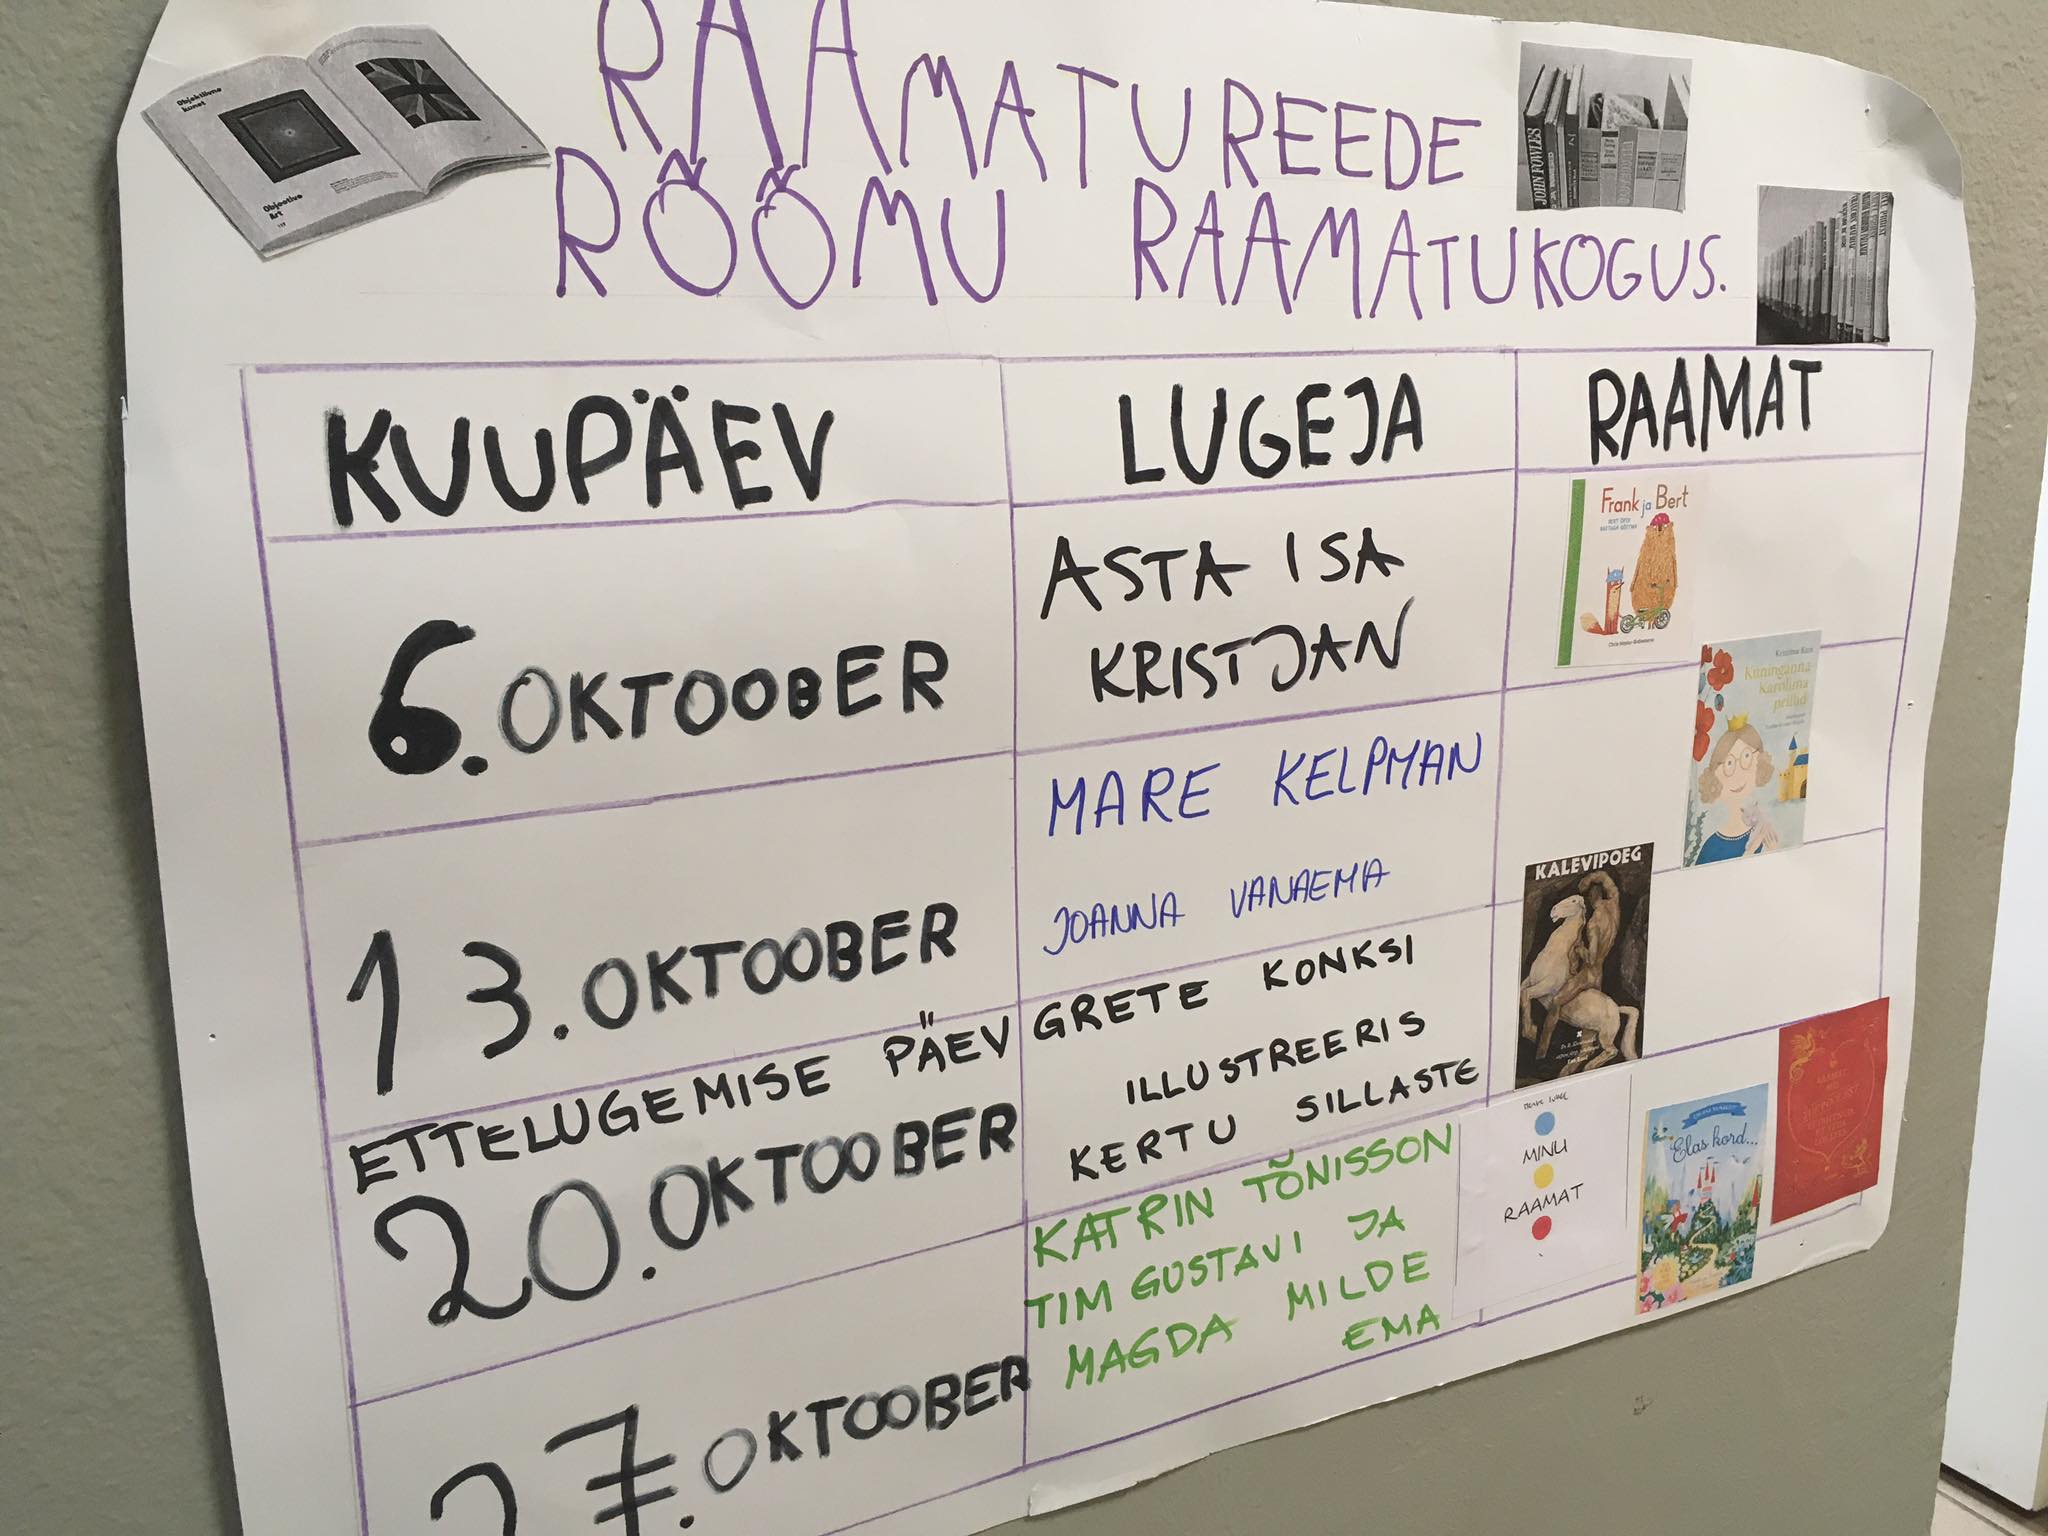 RAAMATUREEDE
RÕÕMU RAAMATUKOGUS.
Objektiivne
kunst
Objective
Art
JOHN FOWLES
KUUPÄEV LUGEJA RAAMAT
6. OKTOOBER
ASTA ISA
KRISTJAN
Frank ja Bert
13. OKTOOBER
MARE KELPMAN
JOANNA VANAEMA
Kuninganna
Karolina
prillid
ETTELUGEMISE PÄEV
20. OKTOOBER
GRETE KONKSI
ILLUSTREERIS
KERTU SILLASTE
KALEVIPOEG
27. OKTOOBER
KATRIN TÕNISSON
TIM GUSTAVI JA
MAGDA MILDE
EMA
MINU
RAAMAT
Elas kord...